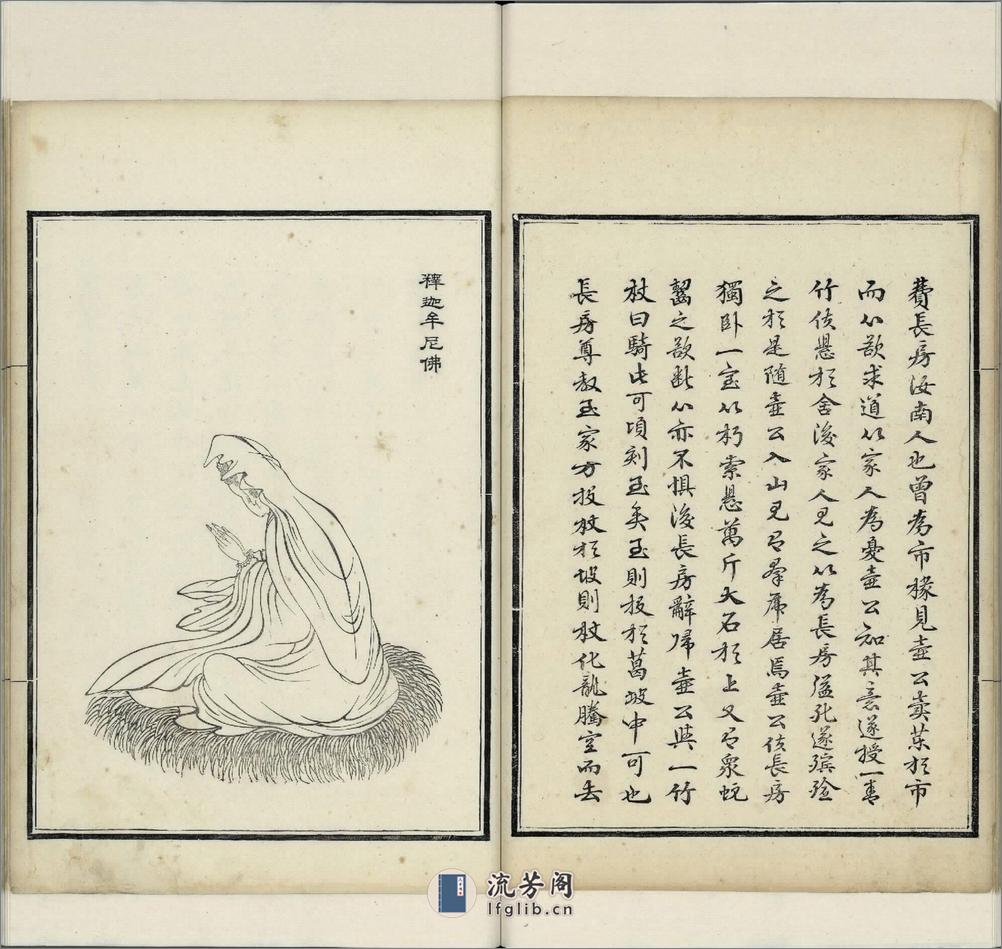 費長房汝南人也曾為市掾見壺公賣藥於市
而心欲求道以家人為憂壺公知其意遂授一青
竹使懸於舍後家人見之以為長房縊死遂殯殮
之於是随壺公入山見有羣虎居焉壺公使長房
獨卧一室以朽索懸萬斤大石於上又有衆蛇
齧之欲断心亦不惧後長房辭帰壺公與一竹
杖曰騎此可頃刻至矣至則投於葛坡中可也
長房尊教至家方投杖於坡則杖化龍騰空而去
釋迦牟尼佛
流芳阁
lfglib.cn